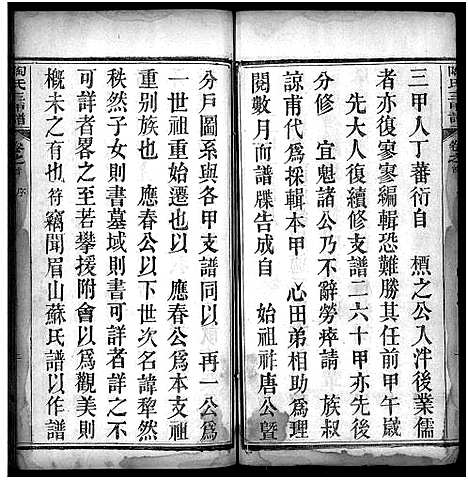 三甲人丁蕃衍自　標之公入泮後業儒
者亦復寥寥編輯恐難勝其任前甲午歲
先大人復續修支譜二六十甲亦先後
分修　宜魁諸公乃不辭勞瘁請　族叔
諒甫代為採輯本甲　心田弟相助為理
閱數月而譜牒告成自　始祖祚唐公暨
分戶圖系與各甲支譜同以　再一公為
一世祖重始遷也以　應春公為本支祖
重別族也　應春公以下世次名諱犂然
秩然子女則書墓域則書可詳者詳之不
可詳者畧之至若攀援附會以為觀美則
槪未之有也符竊聞眉山蘇氏譜以作譜
陶氏三甲譜
卷之首
序